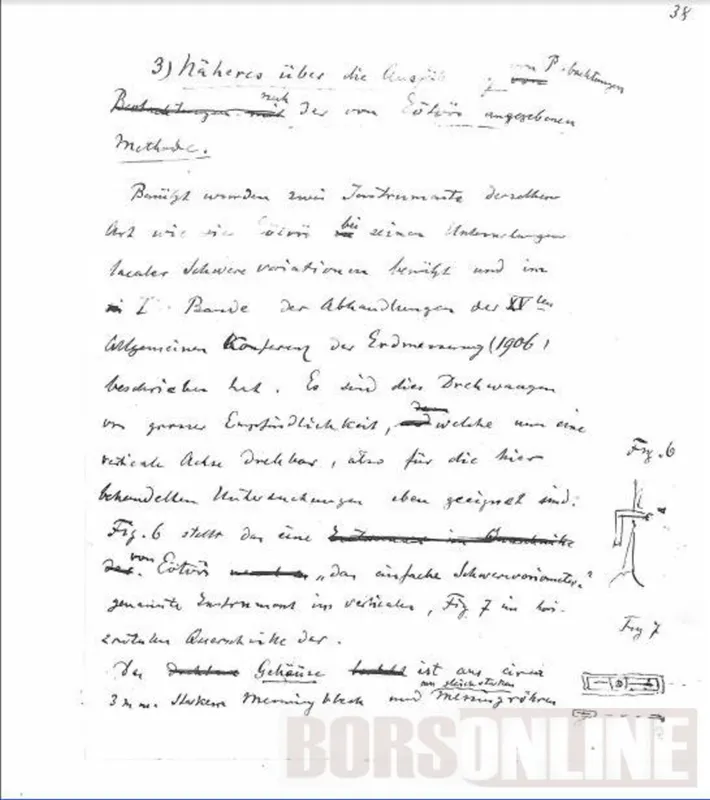 38
3) Näheres über die Ausfüh von Beobachtungen
nach der von Eötvös angegebenen
Methode.
Benützt wurden zwei Instrumente derselben
Art wie sie Eötvös bei seinen Untersuchungen
localer Schwerevariationen benützt und im
I. Bande der Abhandlungen der XVten
Allgemeinen Konferenz der Erdmessung (1906)
beschrieben hat. Es sind dies Drehwaagen
von grosser Empfindlichkeit, welche um eine
verticale Achse drehbar, also für die hier
behandelten Untersuchungen eben geeignet sind.
Fig. 6
Fig. 6 stellt das eine
von Eötvös „das einfache Schwerevariometer“
genannte Instrument im verticalen, Fig 7 im hori-
Fig 7
zontalen Querschnitte dar.
Das Gehäuse ist aus einem
3 m.m. starkem Messingblech und Messingröhren
BORSONLINE